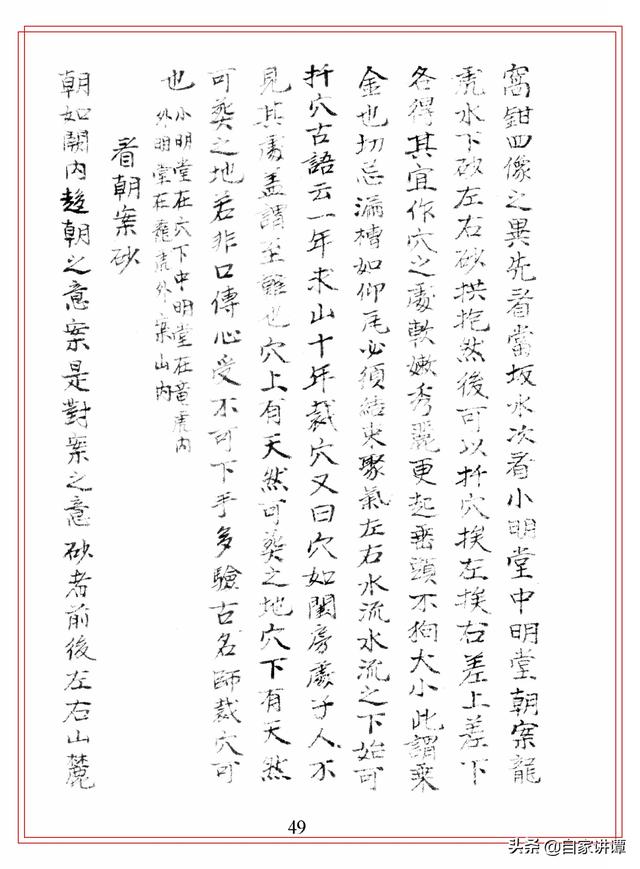 窩鉗四像之異先看當坂水次看小明堂中明堂朝案龍
虎水下砂左右砂拱抱然後可以扦穴挨左挨右差上差下
各得其宜作穴之處軟嫩秀麗更起巒頭不狥大小此謂乘
金也切忌漏槽如仰瓦必須結束聚氣左右水流水流之下始可
扦穴古語云一年求山十年裁穴又曰穴如閨房處子人不
見其處盖謂至難也穴上有天然可葵之地穴下有天然
可葵之地若非口傳心受不可下手多驗古名師裁穴可
也小明堂在穴下中明堂在竜虎内
外明堂在龍虎外案山内
看朝案砂
朝如闕内趍朝之意案是對案之意砂者前後左右山麓
49
头条 @自家讲谭